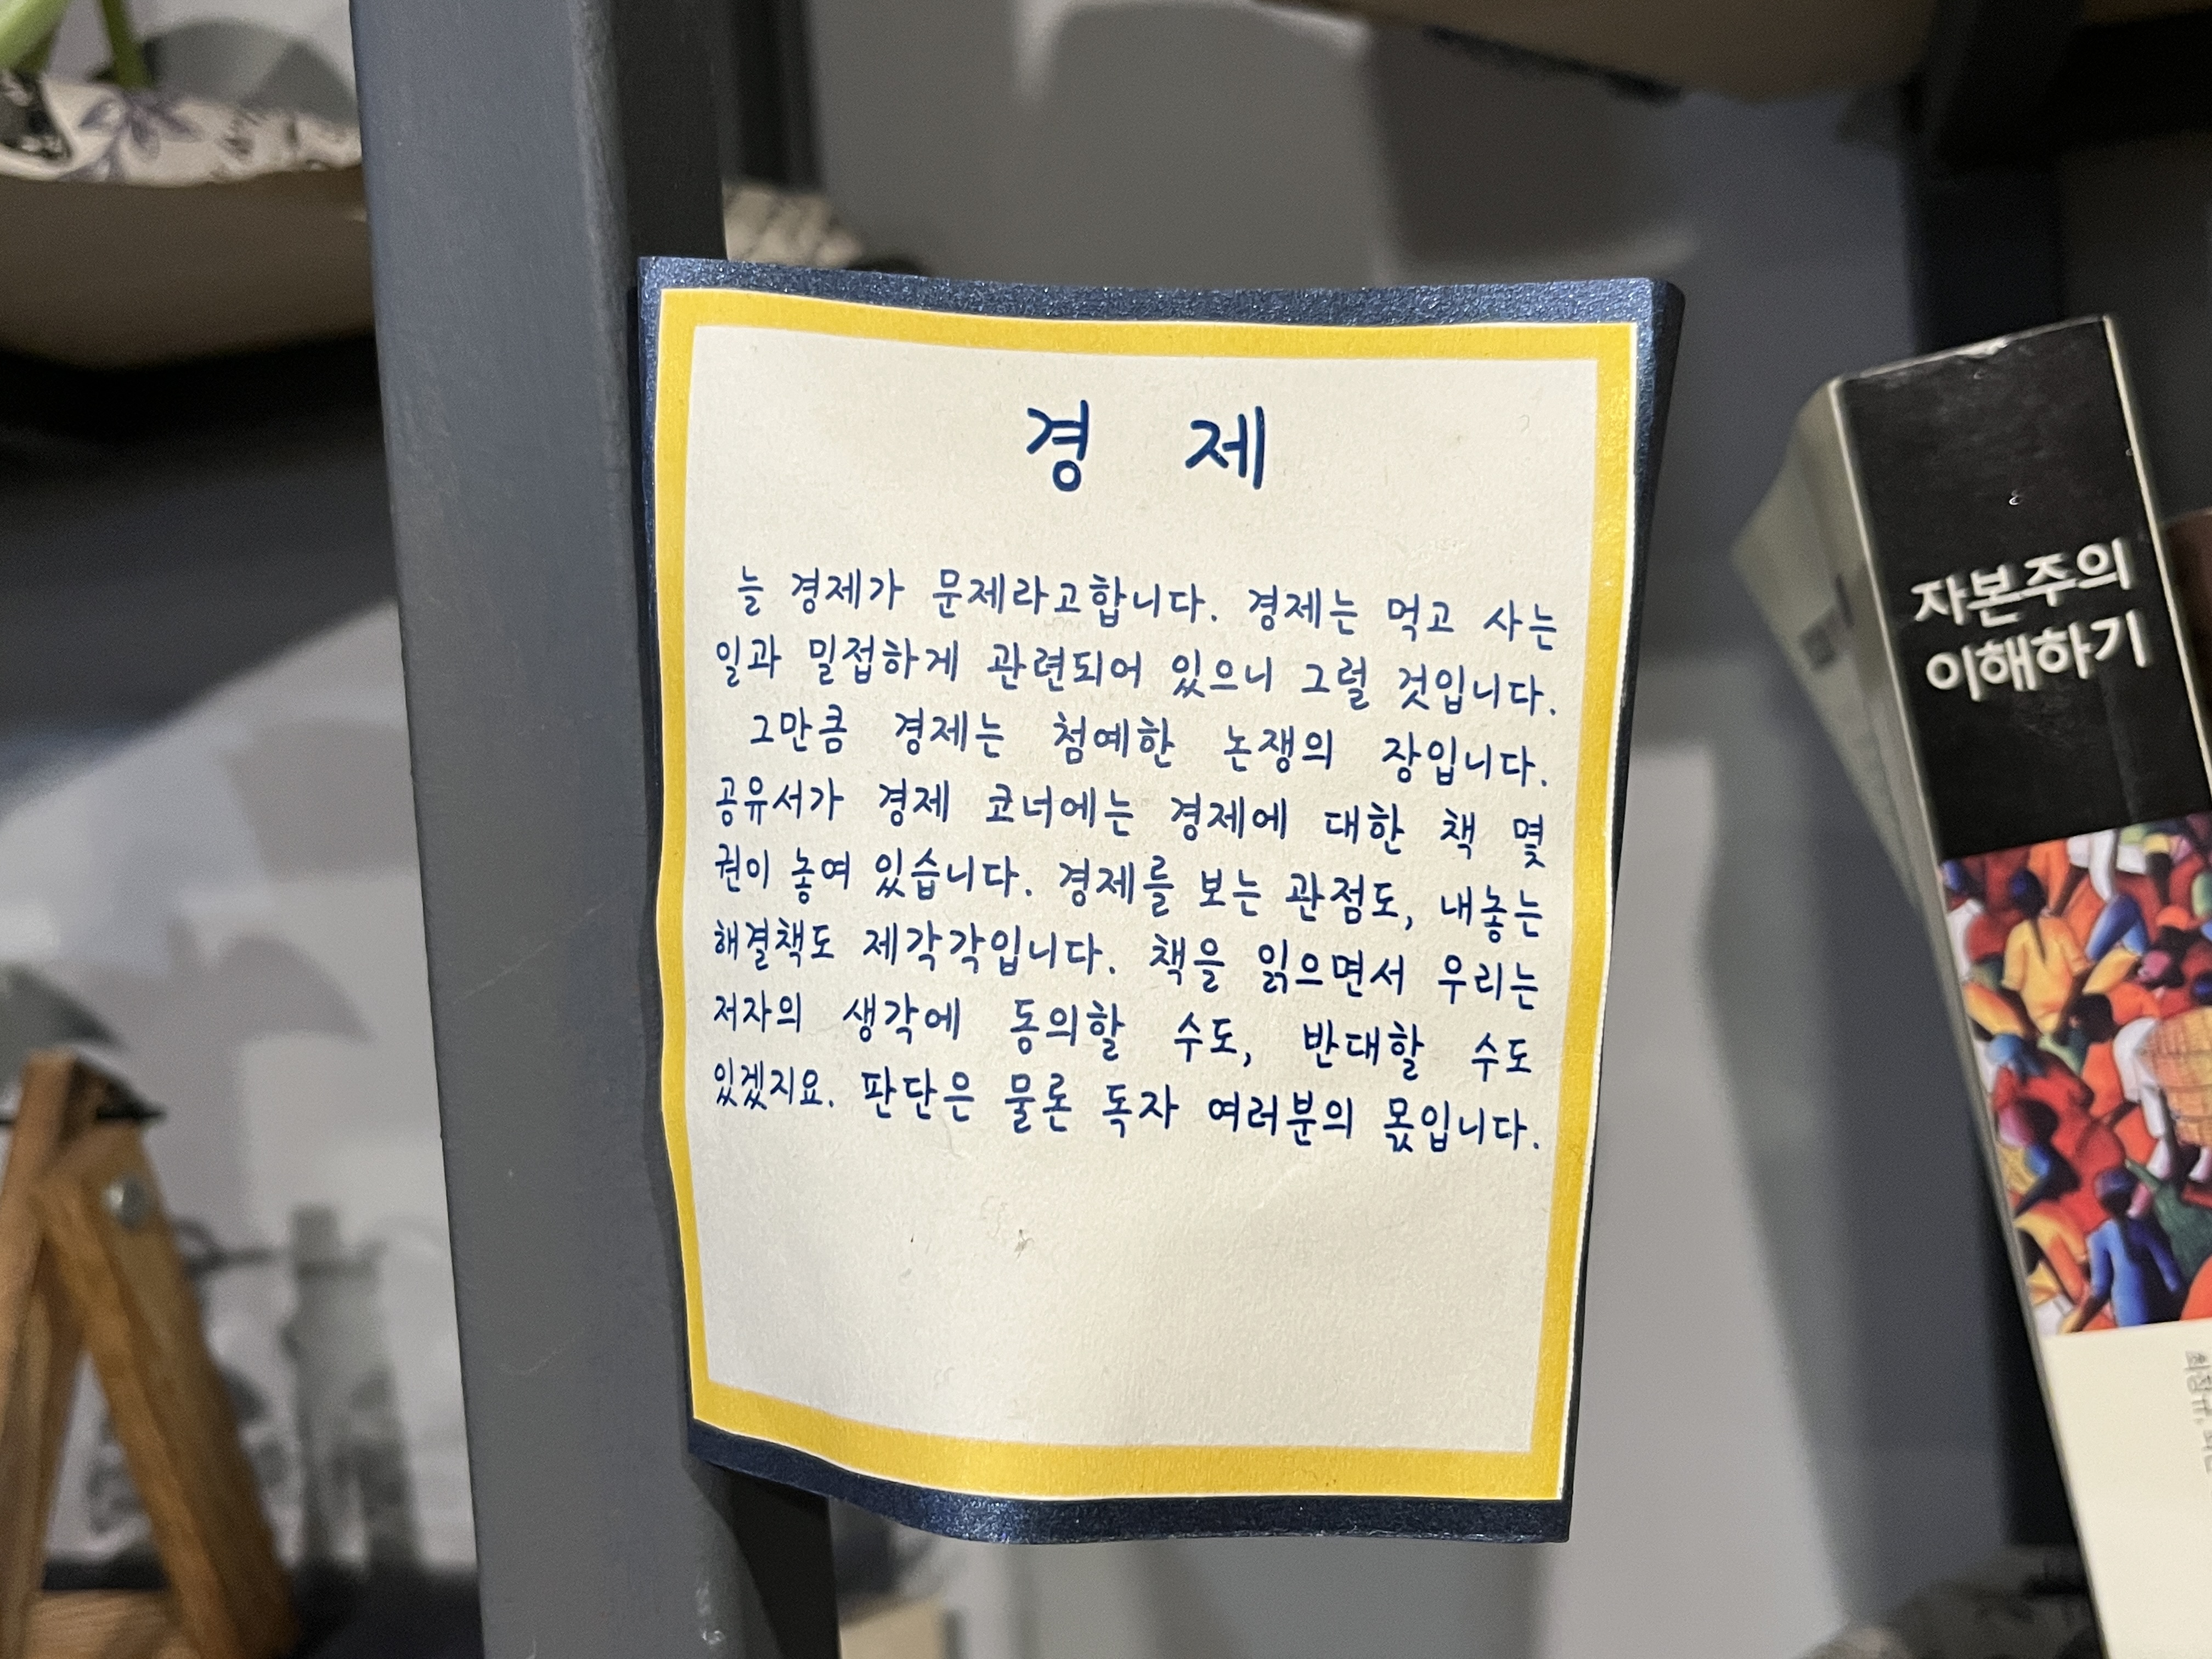 경 제
늘 경제가 문제라고합니다. 경제는 먹고 사는
일과 밀접하게 관련되어 있으니 그럴 것입니다.
그만큼 경제는 첨예한 논쟁의 장입니다.
공유서가 경제 코너에는 경제에 대한 책 몇
권이 놓여 있습니다. 경제를 보는 관점도, 내놓는
해결책도 제각각입니다. 책을 읽으면서 우리는
저자의 생각에 동의할 수도, 반대할 수도
있겠지요. 판단은 물론 독자 여러분의 몫입니다.
자본주의
이해하기